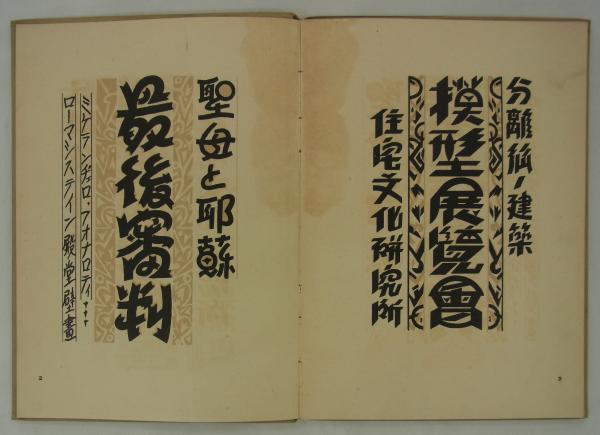 分離派ノ建築
摸型展覽會
住宅文化研究所
3
聖母と耶蘇
最後審判
ミケランヂェロ・フォナロティ・・・
ローマシステイン殿堂壁畫
2